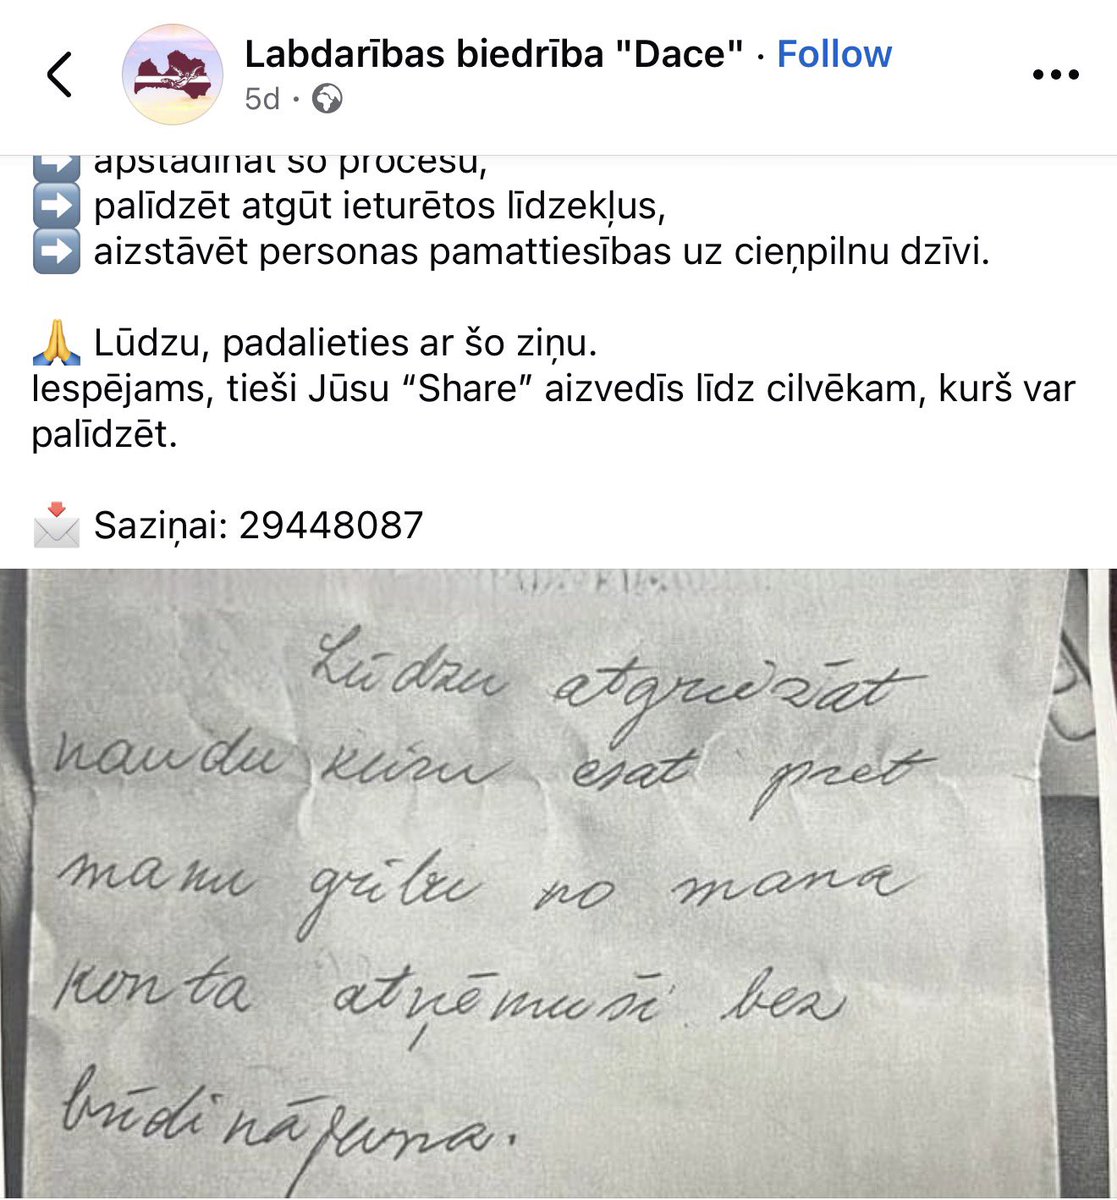 Labdarības biedrība "Dace" · Follow
5d ·
➡️ apstādināt šo procesu,
➡️ palīdzēt atgūt ieturētos līdzekļus,
➡️ aizstāvēt personas pamattiesības uz cieņpilnu dzīvi.
🙏 Lūdzu, padalieties ar šo ziņu.
Iespējams, tieši Jūsu “Share” aizvedīs līdz cilvēkam, kurš var
palīdzēt.
📩 Saziņai: 29448087
Lūdzu atgriezāt
naudu kuru esat pret
manu gribu no mana
konta atņēmuši bez
brīdinājuma.